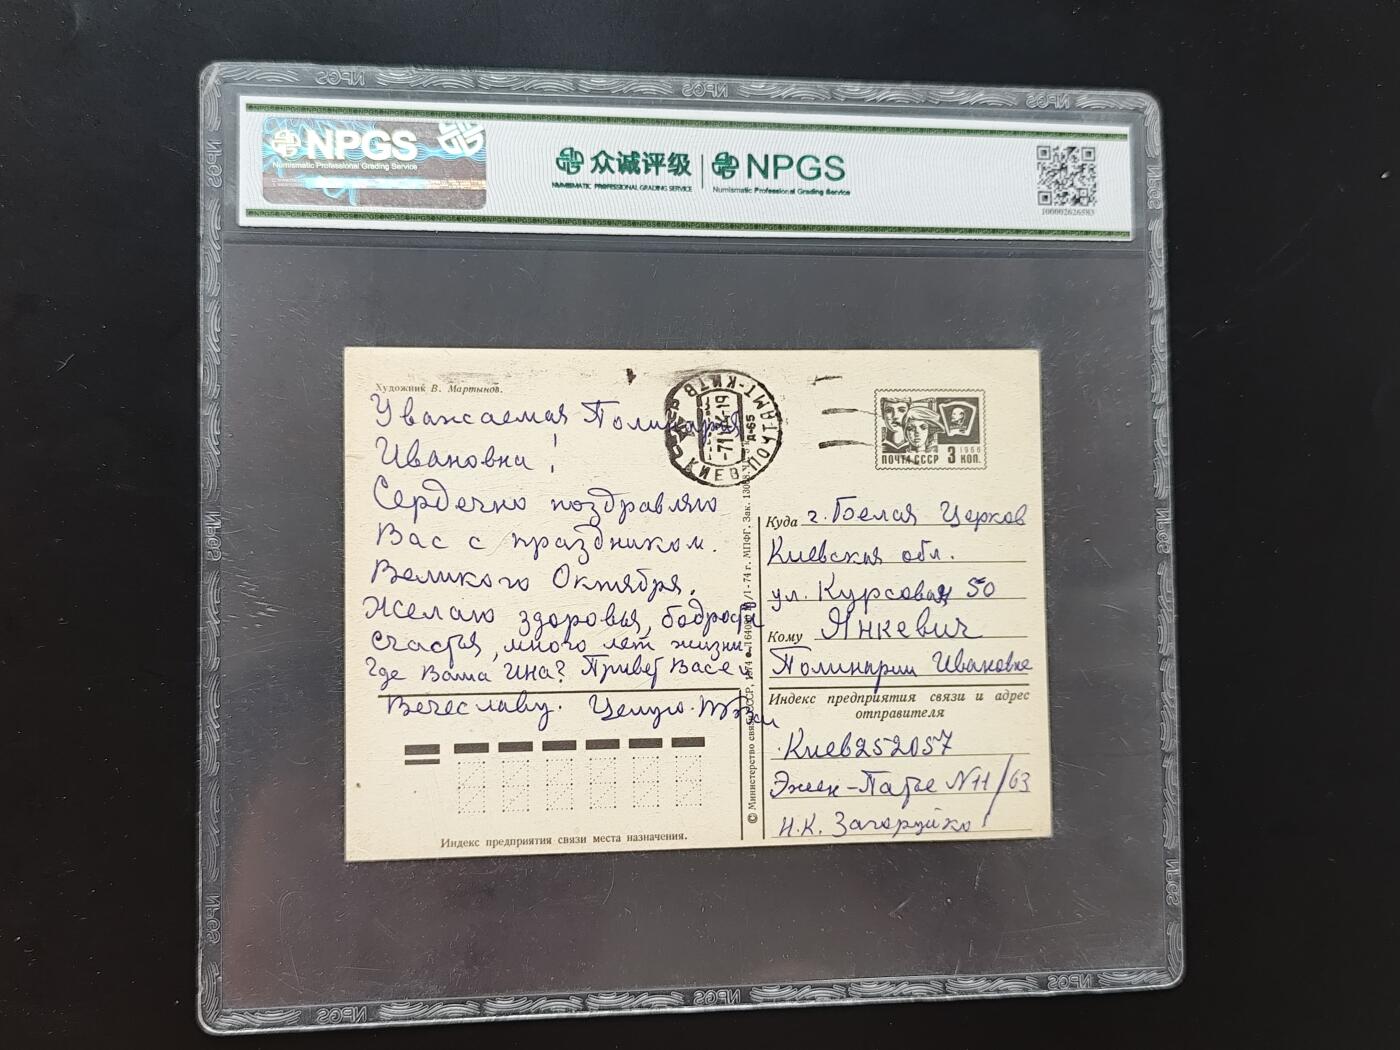 NPGS
Numismatic Professional Grading Service
众诚评级
NUMISMATIC PROFESSIONAL GRADING SERVICE
NPGS
Numismatic Professional Grading Service
100002626583
Художник В. Мартынов.
Уважаемая Полинария
Ивановна!
Сердечно поздравляю
Вас с праздником.
Великого Октября.
Желаю здоровья, бодрости
счастья, много лет жизни.
Где Ваша Ина? Привет Васе и
Вечеславу. Целую.
Индекс предприятия связи места назначения.
КИЕВ ПОЧТАМТ-КИТВ
Д-65
© Министерство связи СССР, 1974
МПФГ. Зак.
ПОЧТА СССР 3 КОП.
1966
Куда г. Белая Церков
Киевская обл.
ул. Курсовая 50
Кому Янкевич
Полинарии Ивановне
Индекс предприятия связи и адрес
отправителя
Киев 252057
Эжен-Патье N 11/63
Н.К. Загоруйко